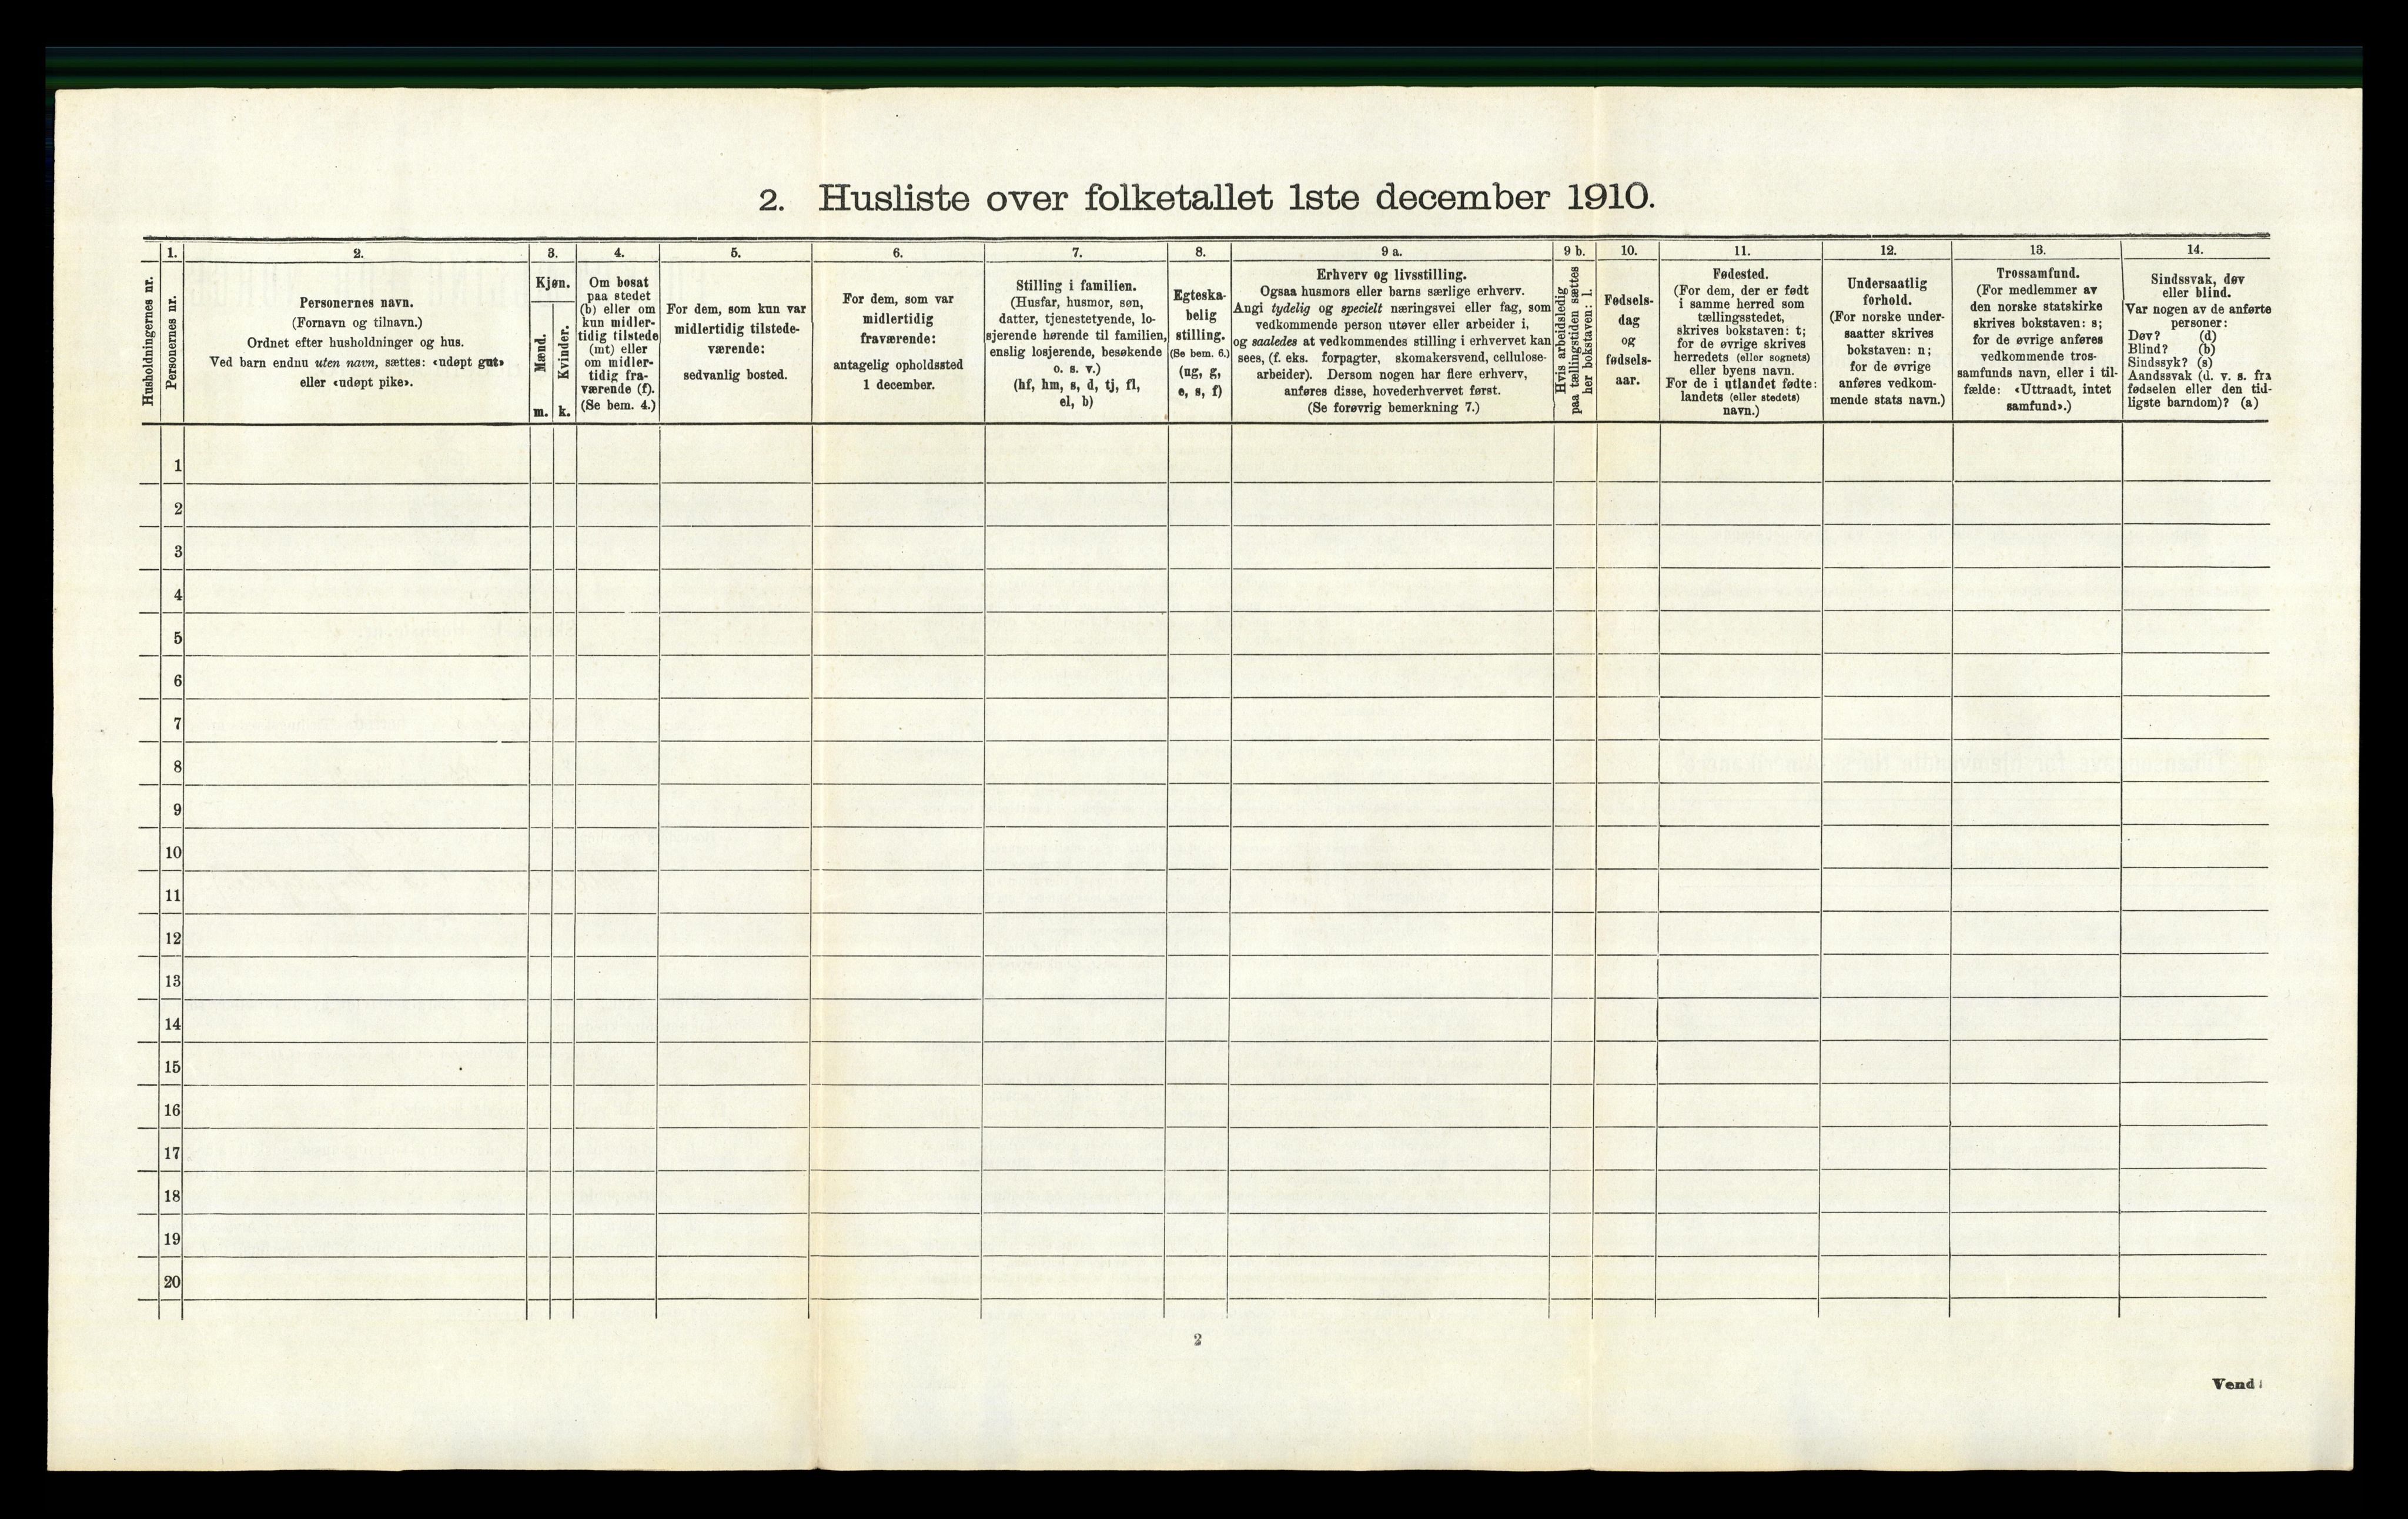 2. Husliste over folketallet 1ste december 1910.
Husholdningernes nr.
1.
Personernes nr.
2.
Personernes navn.
(Fornavn og tilnavn.)
Ordnet efter husholdninger og hus.
Ved barn endnu uten navn, sættes: «udøpt gut»
eller «udøpt pike».
3.
Kjøn.
Mænd.
Kvinder.
m. k.
4.
Om bosat
paa stedet
(b) eller om
kun midler-
tidig tilstede
(mt) eller
om midler-
tidig fra-
værende (f).
(Se bem. 4.)
5.
For dem, som kun var
midlertidig tilstede-
værende:
sedvanlig bosted.
6.
For dem, som var
midlertidig
fraværende:
antagelig opholdssted
1 december.
7.
Stilling i familien.
(Husfar, husmor, søn,
datter, tjenestetyende, lo-
sjerende hørende til familien,
enslig losjerende, besøkende
o. s. v.)
(hf, hm, s, d, tj, fl,
el, b)
8.
Egteska-
belig
stilling.
(Se bem. 6.)
(ug, g,
e, s, f)
9 a.
Erhverv og livsstilling.
Ogsaa husmors eller barns særlige erhverv.
Angi tydelig og specielt næringsvei eller fag, som
vedkommende person utøver eller arbeider i,
og saaledes at vedkommendes stilling i erhvervet kan
sees, (f. eks. forpagter, skomakersvend, cellulose-
arbeider). Dersom nogen har flere erhverv,
anføres disse, hovederhvervet først.
(Se forøvrig bemerkning 7.)
9 b.
Hvis arbeidsledig
paa tællingstiden sættes
her bokstaven: l.
10.
Fødsels-
dag
og
fødsels-
aar.
11.
Fødested.
(For dem, der er født
i samme herred som
tællingsstedet,
skrives bokstaven: t;
for de øvrige skrives
herredets (eller sognets)
eller byens navn.
For de i utlandet fødte:
landets (eller stedets)
navn.)
12.
Undersaatlig
forhold.
(For norske under-
saatter skrives
bokstaven: n;
for de øvrige
anføres vedkom-
mende stats navn.)
13.
Trossamfund.
(For medlemmer av
den norske statskirke
skrives bokstaven: s;
for de øvrige anføres
vedkommende tros-
samfunds navn, eller i til-
fælde: «Uttraadt, intet
samfund».)
14.
Sindssvak, døv
eller blind.
Var nogen av de anførte
personer:
Døv? (d)
Blind? (b)
Sindssyk? (s)
Aandssvak (d. v. s. fra
fødselen eller den tid-
ligste barndom)? (a)
1
2
3
4
5
6
7
8
9
10
11
12
13
14
15
16
17
18
19
20
2
Vend!